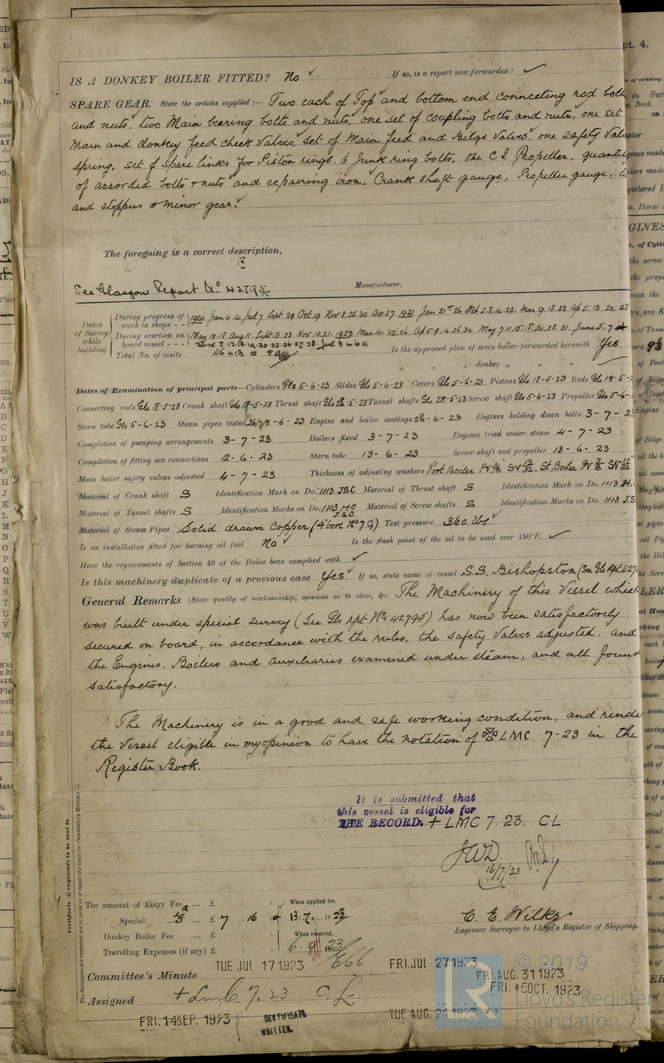 IS A DONKEY BOILER FITTED? No If so, is a report now forwarded?
SPARE GEAR. State the articles supplied:— Two each of Top and bottom end connecting rod bolts
and nuts, two Main bearing bolts and nuts, one set of coupling bolts and nuts, one set
Main and donkey feed check valves, set of Main feed and Bilge Valves, one safety Valve
spring, set of spare links for Piston rings, 6 Junk ring bolts, one C I Propeller, quantity
of assorded bolts + nuts and repairing iron, Crank shaft gauge, Propeller gauge,
and stoppers & minor gear.
The foregoing is a correct description,
See Glasgow Report No 42795. Manufacturer.
Dates of Survey while building
During progress of work in shops - - 1920 Jan 4 Jul 7 Sept 29 Oct 19 Nov 8 25 30 Dec 27 1921 Jan 21 26 Feb 2 8 21 22 Mar 9 18 23 Ap 5 13 20 28
During erection on board vessel - - May 10 18 Aug 11 Sept 13 23 Nov 10 21 1923 Mar 14 22 26 Ap 5 9 16 26 30 May 7 11 15 18 24 28 31 June 5 7
Total No. of visits 46+13 = 59 Is the approved plan of main boiler forwarded herewith Yes
" " " donkey "
Dates of Examination of principal parts—Cylinders Gls 5-6-23 Slides Gls 5-6-23 Covers Gls 5-6-23 Pistons Gls 18-5-23 Rods Gls 18-5-
Connecting rods Gls 18-5-23 Crank shaft Gls 18-5-23 Thrust shaft Gls 28-5-23 Tunnel shafts Gls 28-5-23 Screw shaft Gls 5-6-23 Propeller Gls 5-6-
Stern tube Gls 5-6-23 Steam pipes tested 26/7/8-6-23 Engine and boiler seatings 28-6-23 Engines holding down bolts 3-7-23
Completion of pumping arrangements 3-7-23 Boilers fixed 3-7-23 Engines tried under steam 4-7-23
Completion of fitting sea connections 12-6-23 Stern tube 13-6-23 Screw shaft and propeller 13-6-23
Main boiler safety valves adjusted 4-7-23 Thickness of adjusting washers Port Boiler St. Boiler
Material of Crank shaft S Identification Mark on Do. 1113 JBC Material of Thrust shaft S Identification Mark on Do. 1113
Material of Tunnel shafts S Identification Marks on Do. 1113 Material of Screw shafts S Identification Marks on Do. 1113 J.S
Material of Steam Pipes Solid drawn Copper (4" bore No 7 G) Test pressure 360 lbs.
Is an installation fitted for burning oil fuel No Is the flash point of the oil to be used over 150°F.
Have the requirements of Section 49 of the Rules been complied with
Is this machinery duplicate of a previous case Yes If so, state name of vessel S.S. Bishopston (See Gls Rpt 427
General Remarks (State quality of workmanship, opinions as to class, &c. The Machinery of this Vessel which
was built under special survey (See Gls rpt No 42795) has now been satisfactorily
secured on board, in accordance with the rules, the safety Valves adjusted, and
the Engines, Boilers and Auxiliaries examined under steam, and all found
satisfactory.
The Machinery is in a good and safe working condition, and renders
the Vessel eligible in my opinion to have the notation of + LMC 7-23 in the
Register Book.
It is submitted that
this vessel is eligible for
THE RECORD. + LMC 7. 23. CL
JWD
16/7/23
The amount of Entry Fee ... £ : : When applied for,
Special ... £ 7 : 16 : 13.7.1923
Donkey Boiler Fee ... £ : : When received,
Travelling Expenses (if any) £ : : 6. 23
C. E. Wilks
Engineer Surveyor to Lloyd's Register of Shipping.
Committee's Minute TUE JUL 17 1923 FRI. JUL 27 1923 FRI. AUG. 31 1923
FRI. 5 OCT. 1923
Assigned + LMC 7. 23 C.L.
FRI. 14 SEP. 1923 CERTIFICATE WRITTEN. TUE AUG. 21 1923
LR
© 2019
Lloyd's Register
Foundation